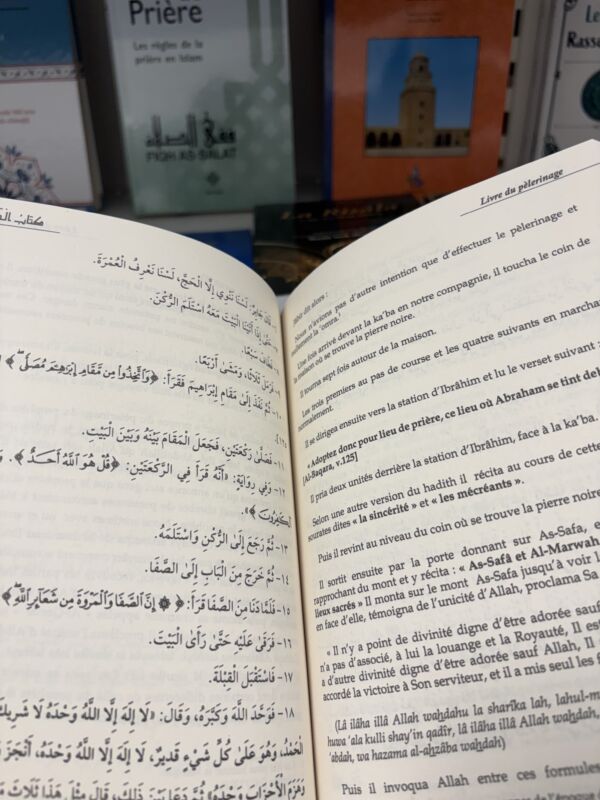 Prière
Les règles de la
prière en Islam
فقه الصلاة
FIQH AS-SALAT
Le
Rassa
La Risâla
كتاب
٦- قَالَ جَابِرٌ: لَسْنَا نَنْوِي إِلَّا الْحَجَّ، لَسْنَا نَعْرِفُ الْعُمْرَةَ.
حَتَّى إِذَا أَتَيْنَا الْبَيْتَ مَعَهُ اسْتَلَمَ الرُّكْنَ.
فَطَافَ سَبْعًا.
فَرَمَلَ ثَلَاثًا، وَمَشَى أَرْبَعًا.
١٠- ثُمَّ نَفَذَ إِلَى مَقَامِ إِبْرَاهِيمَ فَقَرَأَ: ﴿وَاتَّخِذُوا مِن مَّقَامِ إِبْرَاهِيمَ مُصَلًّى﴾
١٢٥].
١١- فَصَلَّى رَكْعَتَيْنِ، فَجَعَلَ الْمَقَامَ بَيْنَهُ وَبَيْنَ الْبَيْتِ.
١٢- وَفِي رِوَايَةٍ: «أَنَّهُ قَرَأَ فِي الرَّكْعَتَيْنِ: ﴿قُلْ هُوَ اللَّهُ أَحَدٌ﴾. وَ
الْكَافِرُونَ﴾».
١٣- ثُمَّ رَجَعَ إِلَى الرُّكْنِ وَاسْتَلَمَهُ.
١٤- ثُمَّ خَرَجَ مِنَ الْبَابِ إِلَى الصَّفَا.
١٥- فَلَمَّا دَنَا مِنَ الصَّفَا قَرَأَ: ﴿۞ إِنَّ الصَّفَا وَالْمَرْوَةَ مِن شَعَائِرِ اللَّهِ﴾
١٦- فَرَقَى عَلَيْهِ حَتَّى رَأَى الْبَيْتَ.
١٧- فَاسْتَقْبَلَ الْقِبْلَةَ.
١٨- فَوَحَّدَ اللَّهَ وَكَبَّرَهُ، وَقَالَ: «لَا إِلَهَ إِلَّا اللَّهُ وَحْدَهُ لَا شَرِيكَ
الْحَمْدُ، وَهُوَ عَلَى كُلِّ شَيْءٍ قَدِيرٌ، لَا إِلَهَ إِلَّا اللَّهُ وَحْدَهُ، أَنْجَزَ
وَهَزَمَ الْأَحْزَابَ وَحْدَهُ» ثُمَّ دَعَا بَيْنَ ذَلِكَ، قَالَ مِثْلَ هَذَا ثَلَاثَ
Livre du pèlerinage
dit alors :
Nous n'avions pas d'autre intention que d'effectuer le pèlerinage et
'omra.'
Une fois arrivé devant la ka'ba en notre compagnie, il toucha le coin de
la maison où se trouve la pierre noire.
Il tourna sept fois autour de la maison.
Les trois premiers au pas de course et les quatre suivants en marchant
normalement.
Il se dirigea ensuite vers la station d'Ibrâhim et lu le verset suivant :
« Adoptez donc pour lieu de prière, ce lieu où Abraham se tint deb
[Al-Baqara, v.125]
Il pria deux unités derrière la station d'Ibrâhim, face à la ka'ba.
Selon une autre version du hadith il récita au cours de cette
sourates dites « la sincérité » et « les mécréants ».
Puis il revint au niveau du coin où se trouve la pierre noire
Il sortit ensuite par la porte donnant sur As-Safa, et
rapprochant du mont et y récita : « As-Safâ et Al-Marwah
lieux sacrés » Il monta sur le mont As-Safa jusqu'à voir l
en face d'elle, témoigna de l'unicité d'Allah, proclama Sa
« Il n'y a point de divinité digne d'être adorée sauf
n'a pas d'associé, à lui la louange et la Royauté, Il est
a d'autre divinité digne d'être adorée sauf Allah, Il
accordé la victoire à Son serviteur, et il a mis seul les f
(Lâ ilâha illâ Allah wahdahu la sharîka lah, lahul-m
huwa 'ala kulli shay'in qadîr, lâ ilâha illâ Allah wahdah,
'abdah, wa hazama al-ahzâba wahdah)
Puis il invoqua Allah entre ces formules